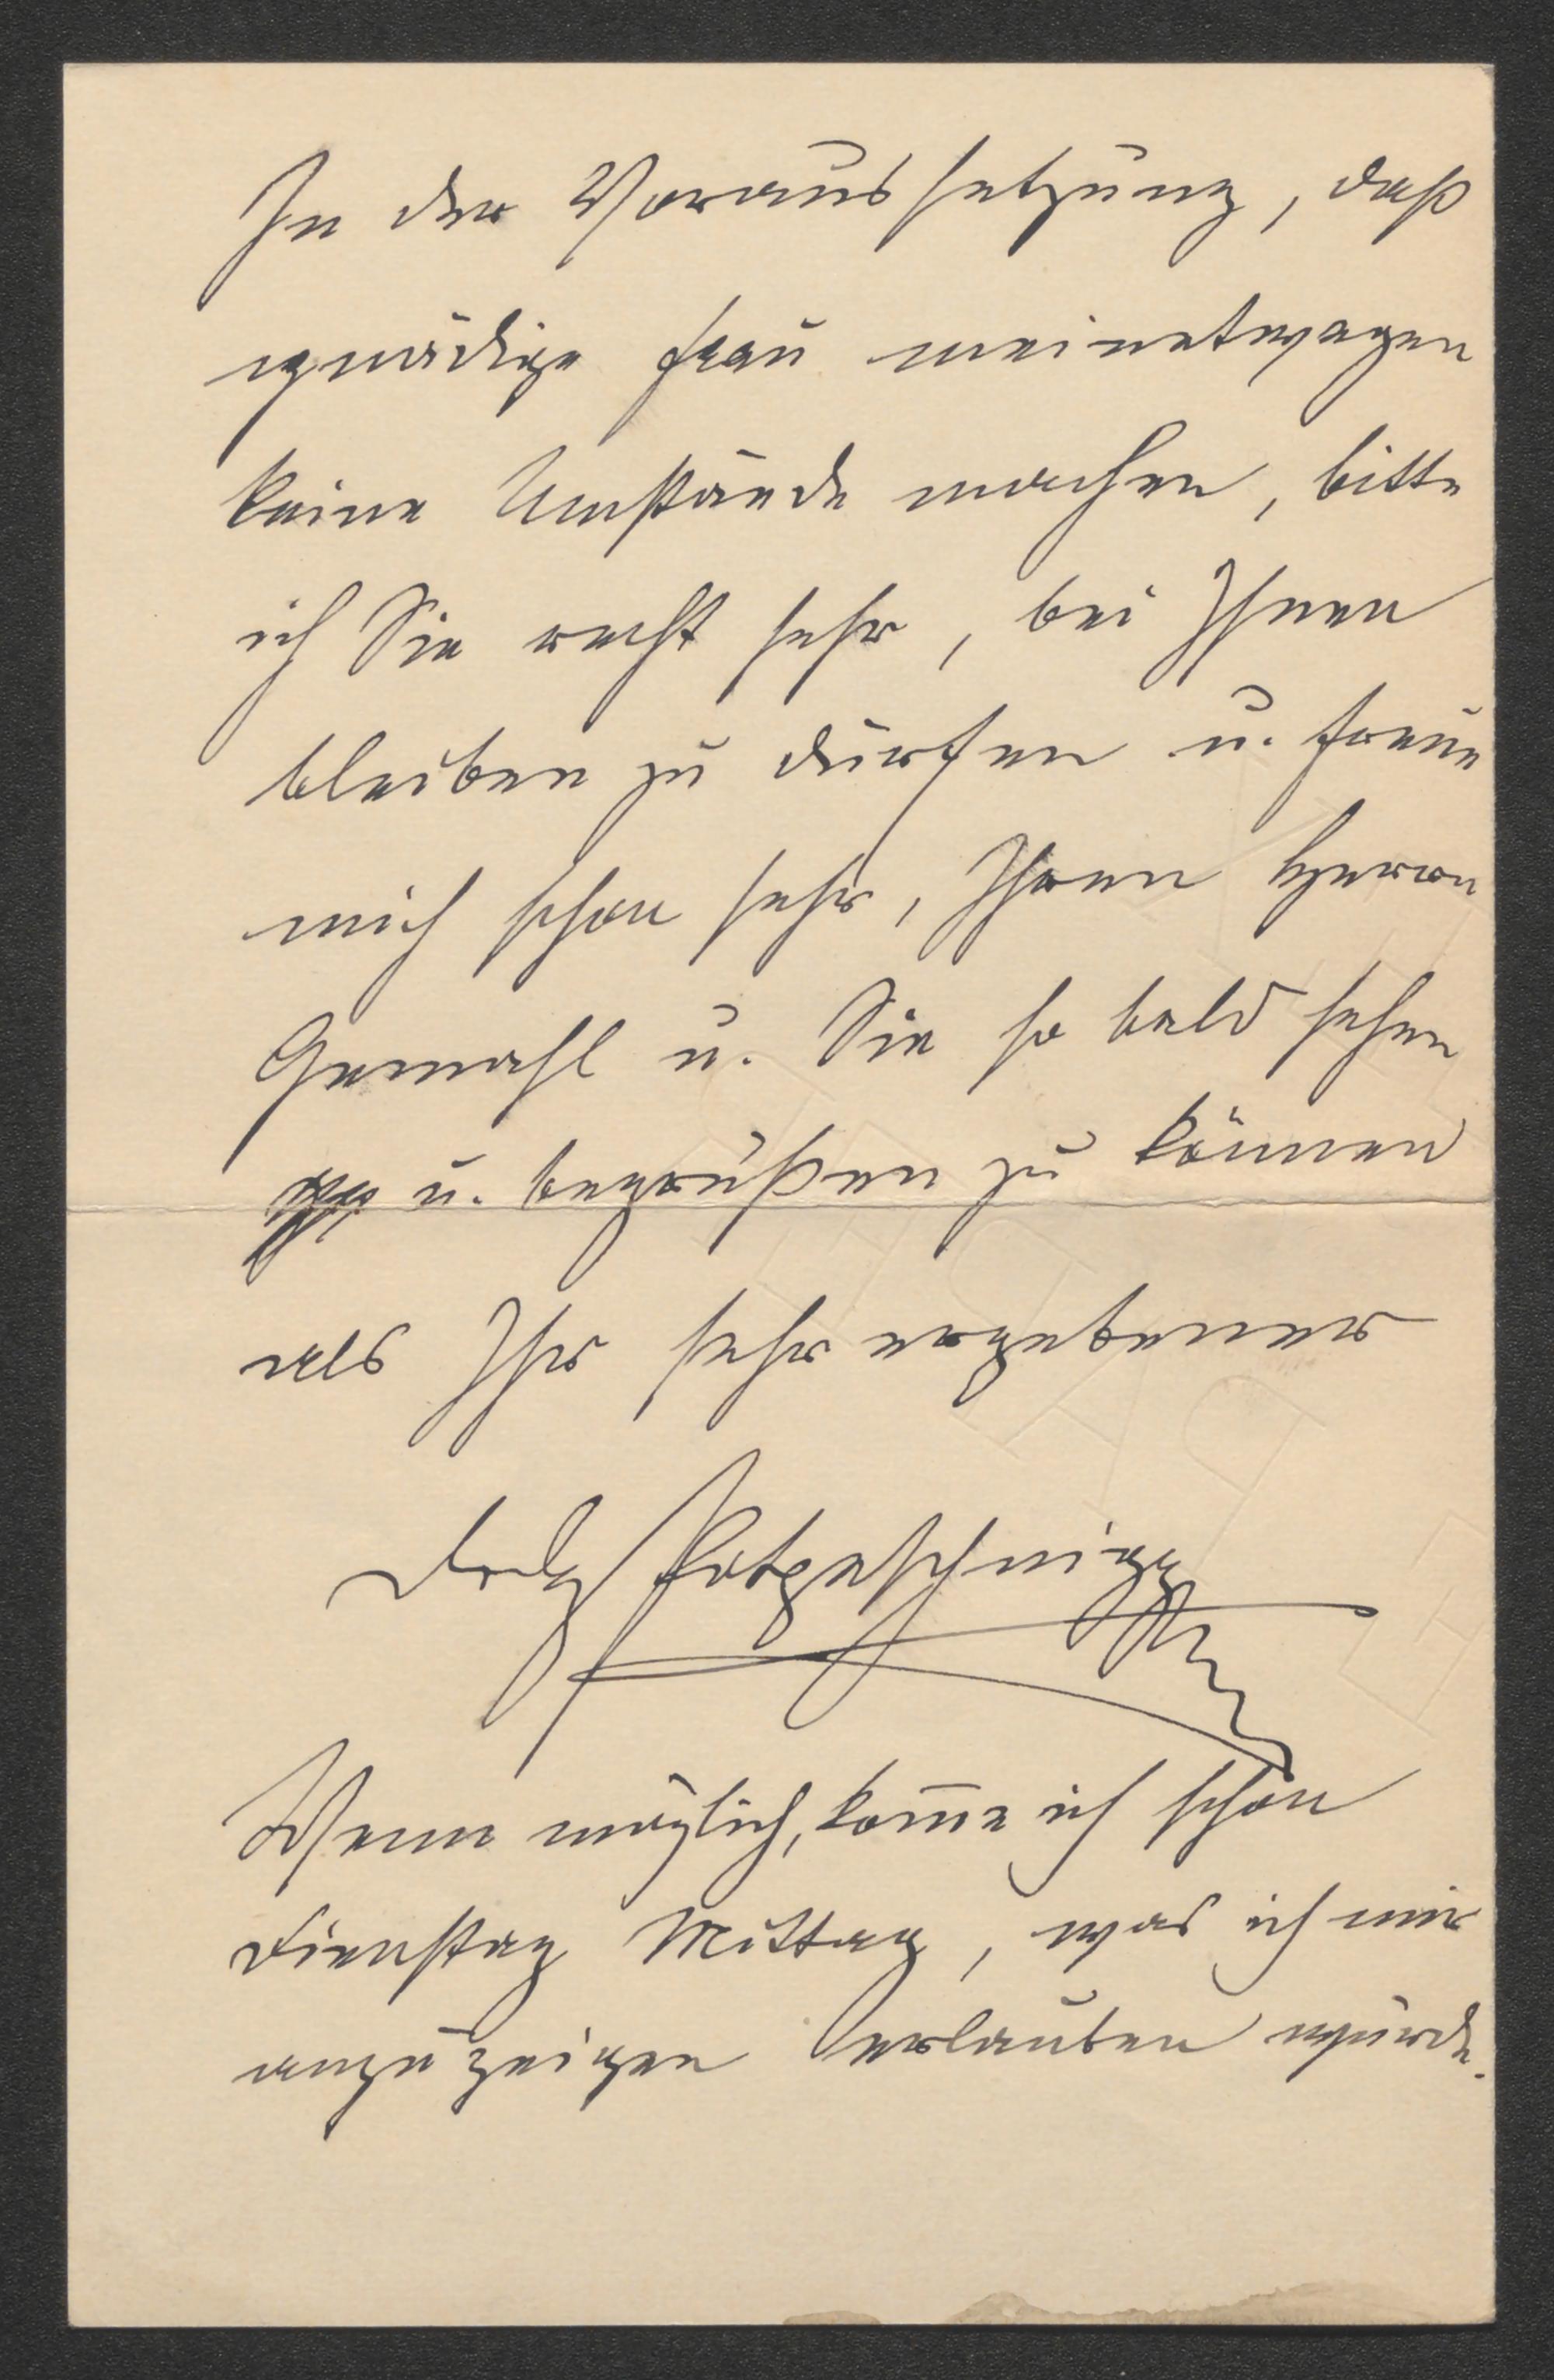 In der Voraussetzung, daß
gnädige Frau meinetwegen
keine Umstände machen, bitte
ich Sie recht sehr, bei Ihnen
bleiben zu dürfen u. freue
mich schon sehr, Ihren Herrn
Gemahl u. Sie so bald sehen
u. begrüßen zu können
als Ihr sehr ergebener
Potpeschnigg
Wenn möglich, kom̅e ich schon
Dienstag Mittag, was ich mir
anzuzeigen erlauben würde.